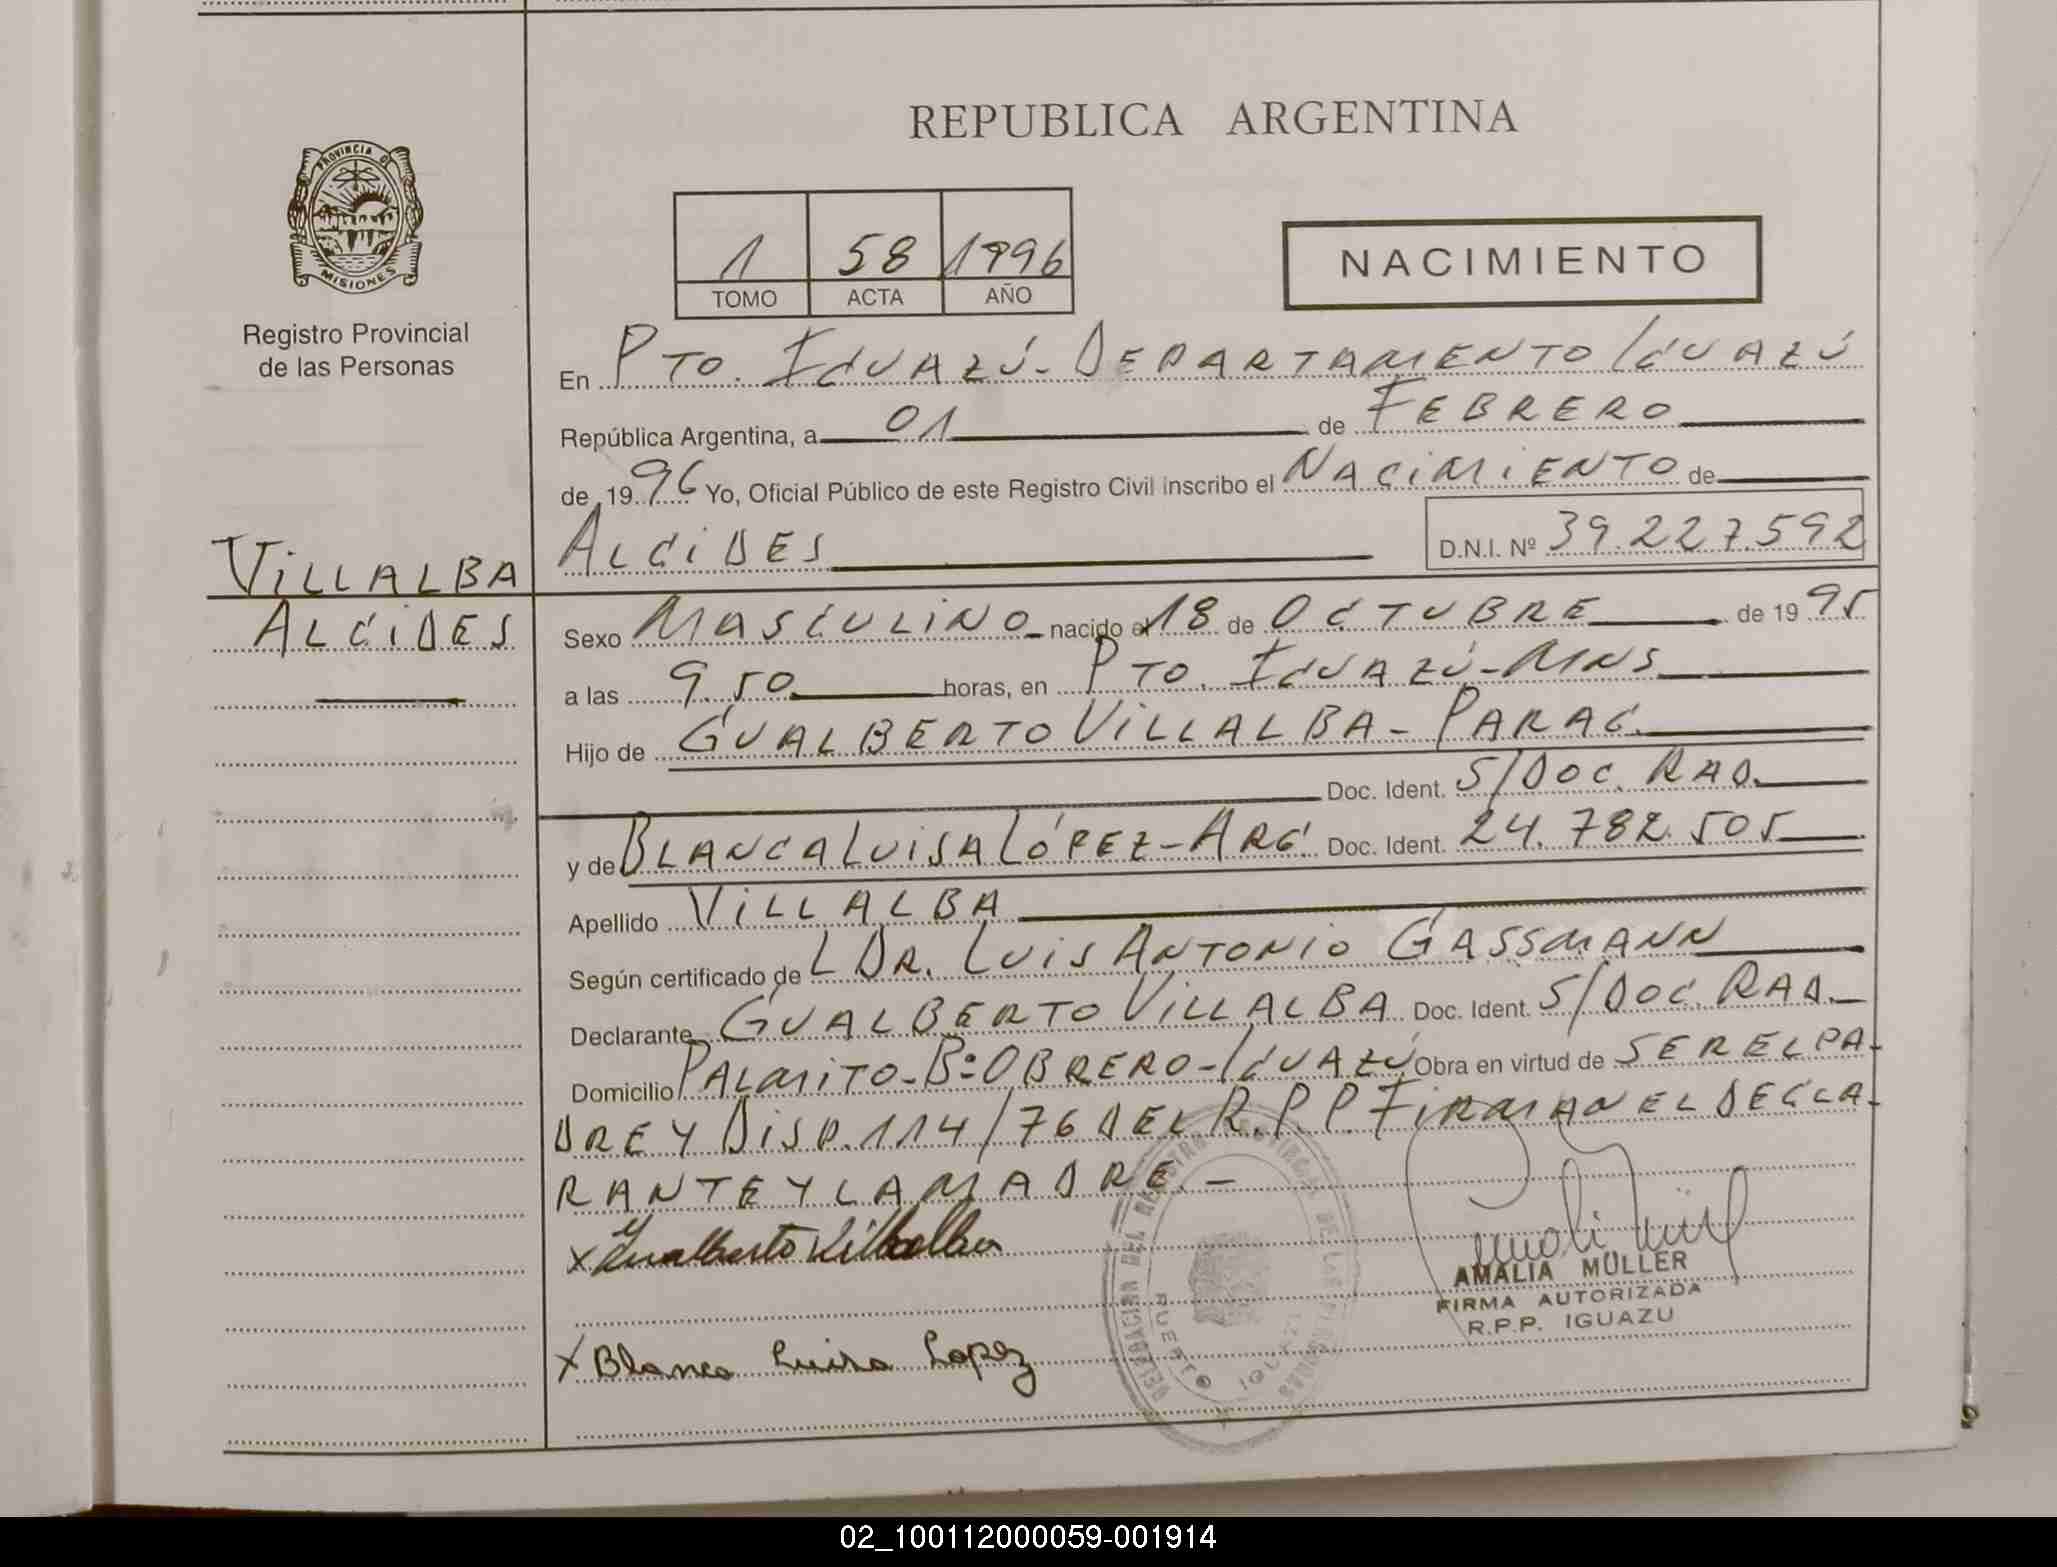 REPUBLICA ARGENTINA
PROVINCIA D
MISIONES
Registro Provincial
de las Personas
1 58 1996
TOMO ACTA AÑO
NACIMIENTO
En PTO. IGUAZÚ - DEPARTAMENTO IGUAZÚ
República Argentina, a 01 de FEBRERO
de 1996 Yo, Oficial Público de este Registro Civil inscribo el NACIMIENTO de
ALCIDES D.N.I. Nº 39.227.592
VILLALBA
ALCIDES
Sexo MASCULINO nacido el 18 de OCTUBRE de 1995
a las 9.50 horas, en PTO. IGUAZÚ - MNS
Hijo de GUALBERTO VILLALBA - PARAG.
Doc. Ident. S/DOC. RAD.
y de BLANCA LUISA LÓPEZ - ARG. Doc. Ident. 24.782.505
Apellido VILLALBA
Según certificado de L DR. LUIS ANTONIO GASSMANN
Declarante GUALBERTO VILLALBA Doc. Ident. S/DOC. RAD.
Domicilio PALMITO - Bº OBRERO - IGUAZÚ Obra en virtud de SER EL PA-
DRE Y DISP. 114/76 DEL R.P.P. FIRMAN EL DECLA-
RANTE Y LA MADRE. -
x Gualberto Villalba
AMALIA MÜLLER
FIRMA AUTORIZADA
R.P.P. IGUAZU
x Blanca Luisa Lopez
DELEGACION DEL REGISTRO PROVINCIAL DE LAS PERSONAS
PUERTO IGUAZU
02_100112000059-001914